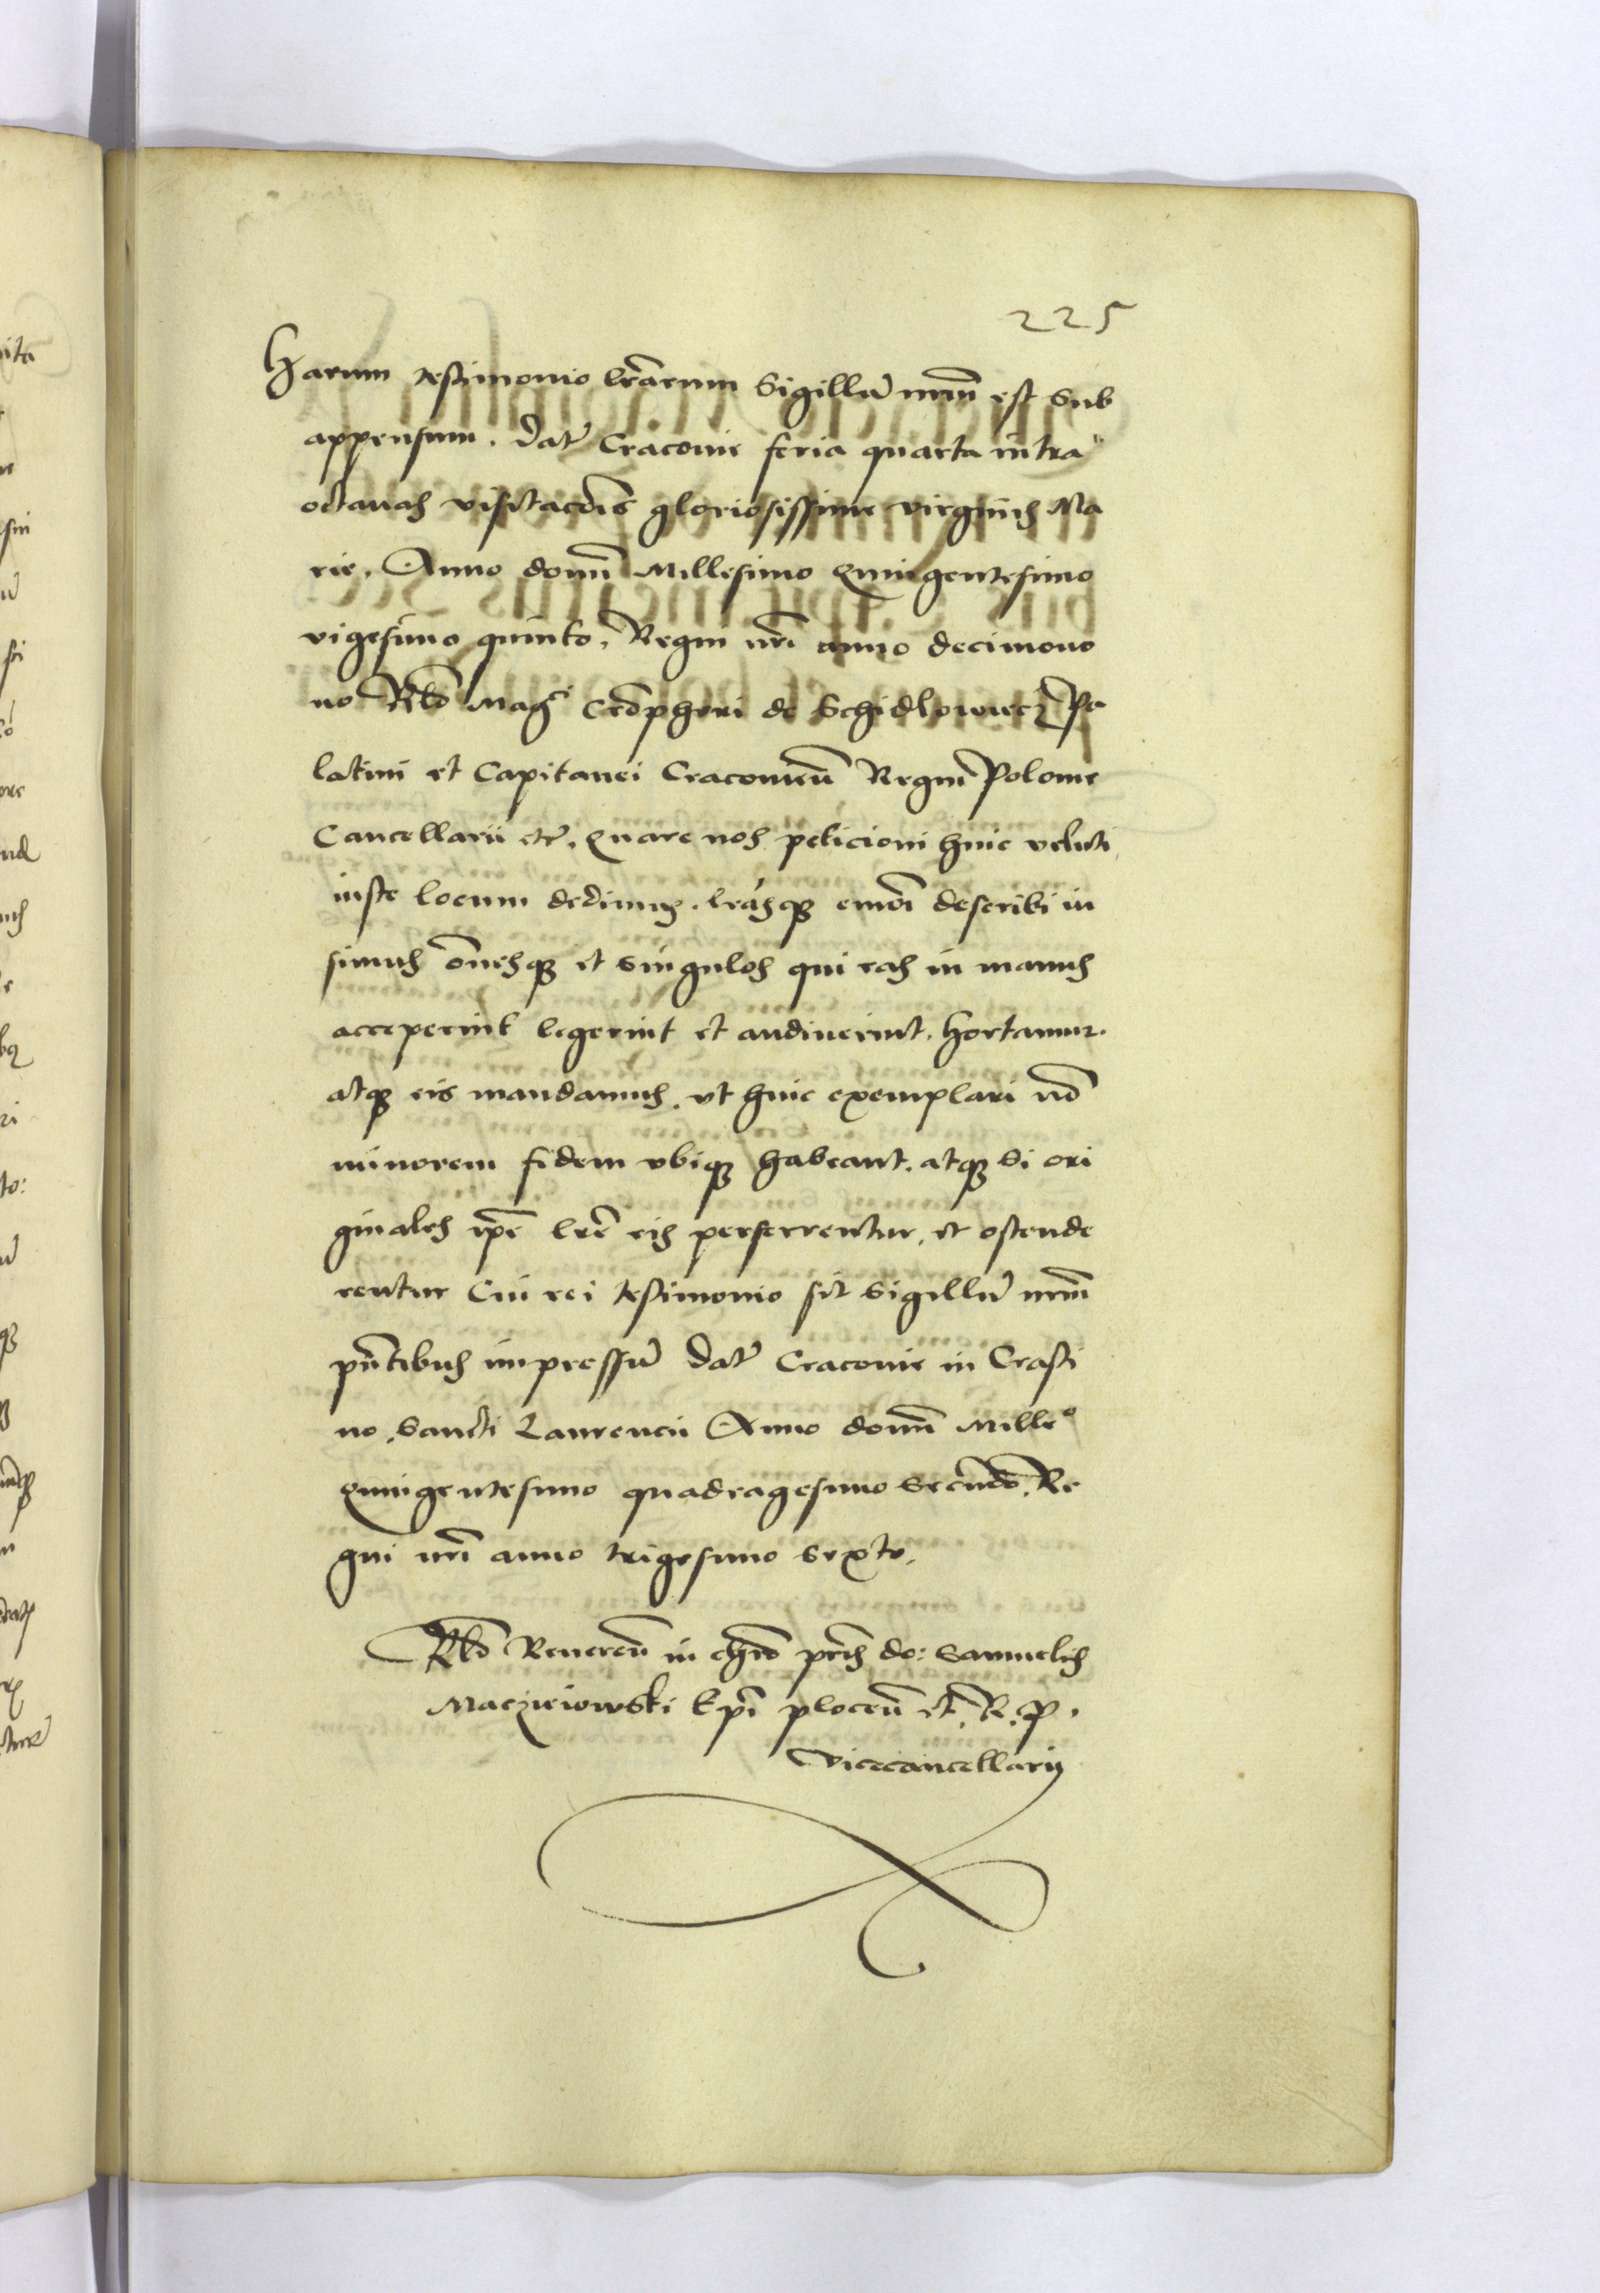 225
Harum testimonio lrarum Sigillū nrm̄ est Sub
appensum. Dat̄ Cracovie feria quarta intra
octavas visitacōis gloriosissime virginis Ma
rie. Anno domī Millesimo Quingentesimo
vigesimo quinto, Regni nrī anno decimono
no Rlō Mag^ci Crōpheri de Schidlowiecz Pa
latini et Capitanei Cracovieñ Regni Polonie
Cancellarii etc̄. Quare nos peticioni huic veluti
iuste locum dedimus. lrāsq̨ em̄oī describi iu
simus oēnesq̨ et singulos qui eas in manus
acceperint legerint et audiverint, hortamur.
atq̨ eis mandamus. vt huic exemplari nō
minorem fidem vbiq̨ habeant. atq̨ si ori
ginales ip̄e lrē eis perferrentur, et ostende
rentur Cui rei testimonio sit Sigillū nrm̄
pn̄tibus impressū Dat̄ Cracovie in Crasti
no Sancti Laurencii Anno domī Mille^o
Quingentesimo quadragesimo secundō. Re
gni nrī anno trigesimo sexto.
Rlō Reverēn in chrō pr̄is do: Samuelis
Macziejowski Epī ploceñ et̄. R. P.
Vicecancellarij